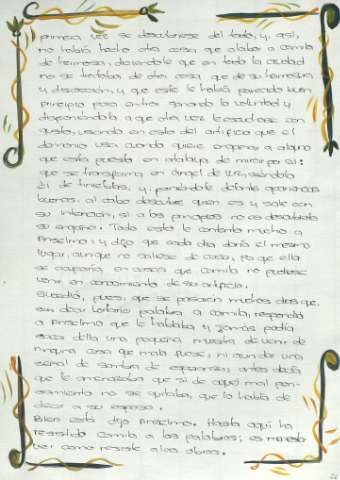 primera vez se descubriese del todo, y, así,
no había hecho otra cosa que alabar a Camila
de hermosa, diciéndole que en toda la ciudad
no se trataba de otra cosa que de su hermosura
y discreción, y que este le había parecido buen
principio para entrar ganando la voluntad y
disponiéndola a que otra vez le escuchase con
gusto, usando en esto del artificio que el
demonio usa cuando quiere engañar a alguno
que está puesto en atalaya de mirar por sí:
que se transforma en ángel de luz, siéndolo
él de tinieblas, y, poniéndole delante apariencias
buenas, al cabo descubre quien es y sale con
su intención, si a los principios no es descubierto
su engaño. Todo esto le contentó mucho a
Anselmo, y dijo que cada día daría el mesmo
lugar, aunque no saliese de casa, porque en ella
se ocuparía en cosas que Camila no pudiese
venir en conocimiento de su artificio.
Sucedió, pues, que se pasaron muchos días que,
sin decir Lotario palabra a Camila, respondía
a Anselmo que la hablaba y jamás podía
sacar della una pequeña muestra de venir en
ninguna cosa que mala fuese, ni aun dar una
señal de sombra de esperanza; antes decía
que le amenazaba que si de aquel mal pen-
samiento no se quitaba, que lo había de
decir a su esposo.
Bien está dijo Anselmo. Hasta aquí ha
resistido Camila a las palabras; es menester
ver cómo resiste a las obras.